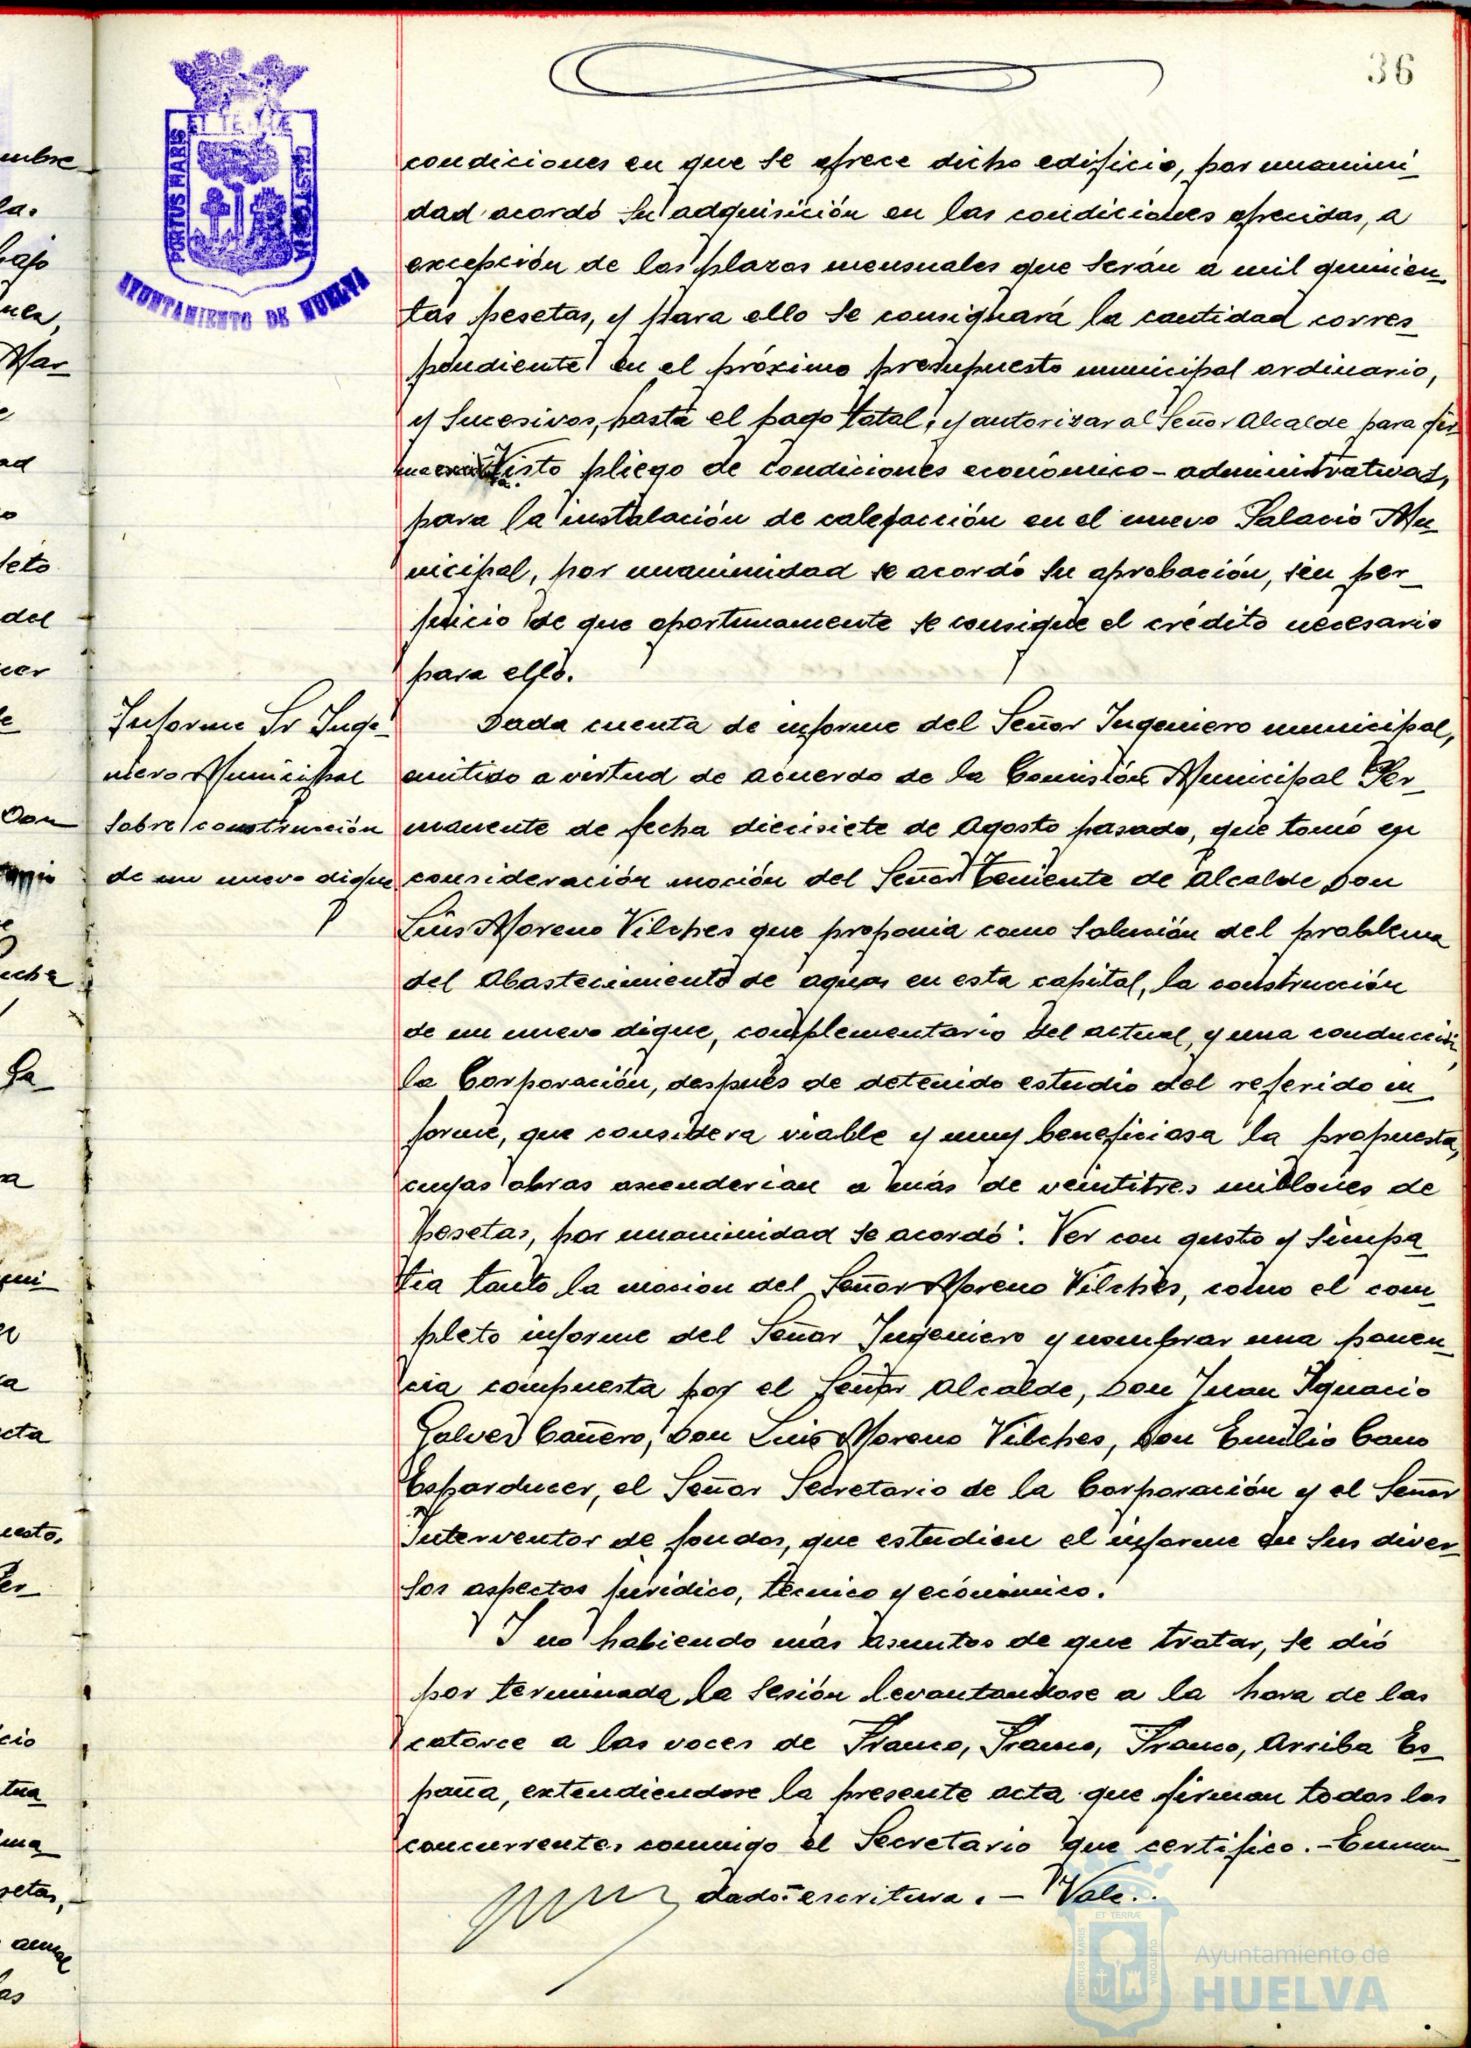 36
ET TERRÆ
PORTUS MARIS
CUSTODIA
AYUNTAMIENTO DE HUELVA
condiciones en que se ofrece dicho edificio, por unanimi-
dad acordó su adquisición en las condiciones ofrecidas, a
excepción de los plazos mensuales que serán a mil quinien-
tas pesetas, y para ello se consignará la cantidad corres-
pondiente en el próximo presupuesto municipal ordinario,
y sucesivos, hasta el pago total; y autorizar al Señor Alcalde para fir-
Visto pliego de condiciones económico-administrativas,
para la instalación de calefacción en el nuevo Palacio Mu-
nicipal, por unanimidad se acordó su aprobación, sin per-
juicio de que oportunamente se consigue el crédito necesario
para ello.
Informe Sr Inge-
niero Municipal
sobre construcción
de un nuevo dique
Dada cuenta de informe del Señor Ingeniero municipal,
emitido a virtud de acuerdo de la Comisión Municipal Per-
manente de fecha diecisiete de Agosto pasado, que tomó en
consideración moción del Señor Teniente de Alcalde Don
Luis Moreno Vilches que proponia como solución del problema
del Abastecimiento de aguas en esta capital, la construcción
de un nuevo dique, complementario del actual, y una conducción,
la Corporación, después de detenido estudio del referido in-
forme, que considera viable y muy beneficiosa la propuesta,
cuyas obras ascenderian a más de veintitres millones de
pesetas, por unanimidad se acordó: Ver con gusto y simpa-
tia tanto la mocion del Señor Moreno Vilches, como el com-
pleto informe del Señor Ingeniero y nombrar una ponen-
cia compuesta por el Señor Alcalde, Don Juan Ignacio
Galvez Cañero, Don Luis Moreno Vilches, Don Emilio Cano
Esparducer, el Señor Secretario de la Corporación y el Señor
Interventor de fondos, que estudien el informe en sus diver-
sos aspectos juridico, técnico y económico.
Y no habiendo más asuntos de que tratar, se dió
por terminada la sesión levantandose a la hora de las
catorce a las voces de Franco, Franco, Franco, Arriba Es-
paña, extendiendose la presente acta que firman todos los
concurrentes conmigo el Secretario que certifico.- Enmen-
dado: escritura. - Vale.
ET TERRÆ
PORTUS MARIS
CUSTODIA
Ayuntamiento de
HUELVA